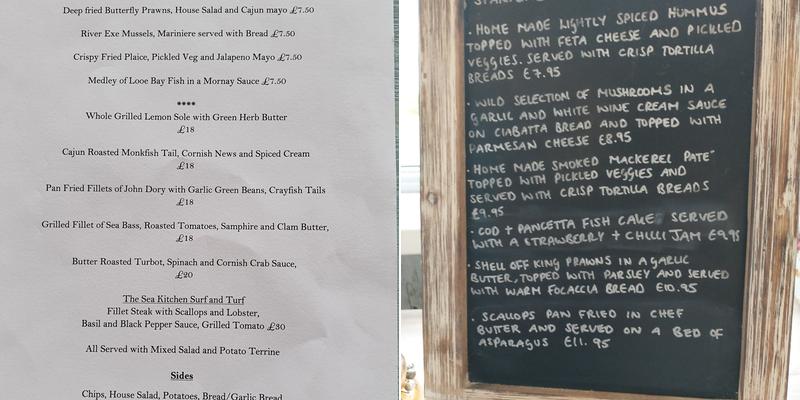 Deep fried Butterfly Prawns, House Salad and Cajun mayo £7.50
River Exe Mussels, Mariniere served with Bread £7.50
Crispy Fried Plaice, Pickled Veg and Jalapeno Mayo £7.50
Medley of Looe Bay Fish in a Mornay Sauce £7.50
****
Whole Grilled Lemon Sole with Green Herb Butter
£18
Cajun Roasted Monkfish Tail, Cornish News and Spiced Cream
£18
Pan Fried Fillets of John Dory with Garlic Green Beans, Crayfish Tails
£18
Grilled Fillet of Sea Bass, Roasted Tomatoes, Samphire and Clam Butter,
£18
Butter Roasted Turbot, Spinach and Cornish Crab Sauce,
£20
The Sea Kitchen Surf and Turf
Fillet Steak with Scallops and Lobster,
Basil and Black Pepper Sauce, Grilled Tomato £30
All Served with Mixed Salad and Potato Terrine
Sides
Chips, House Salad, Potatoes, Bread/Garlic Bread
· HOME MADE LIGHTLY SPICED HUMMUS
TOPPED WITH FETA CHEESE AND PICKLED
VEGGIES. SERVED WITH CRISP TORTILLA
BREADS £7.95
· WILD SELECTION OF MUSHROOMS IN A
GARLIC AND WHITE WINE CREAM SAUCE
ON CIABATTA BREAD AND TOPPED WITH
PARMESAN CHEESE £8.95
· HOME MADE SMOKED MACKEREL PATE
TOPPED WITH PICKLED VEGGIES AND
SERVED WITH CRISP TORTILLA BREADS
£9.95
· COD + PANCETTA FISH CAKE SERVED
WITH A STRAWBERRY + CHILLI JAM £9.95
· SHELL OFF KING PRAWNS IN A GARLIC
BUTTER, TOPPED WITH PARSLEY AND SERVED
WITH WARM FOCACCIA BREAD £10.95
· SCALLOPS PAN FRIED IN CHEF
BUTTER AND SERVED ON A BED OF
ASPARAGUS £11.95